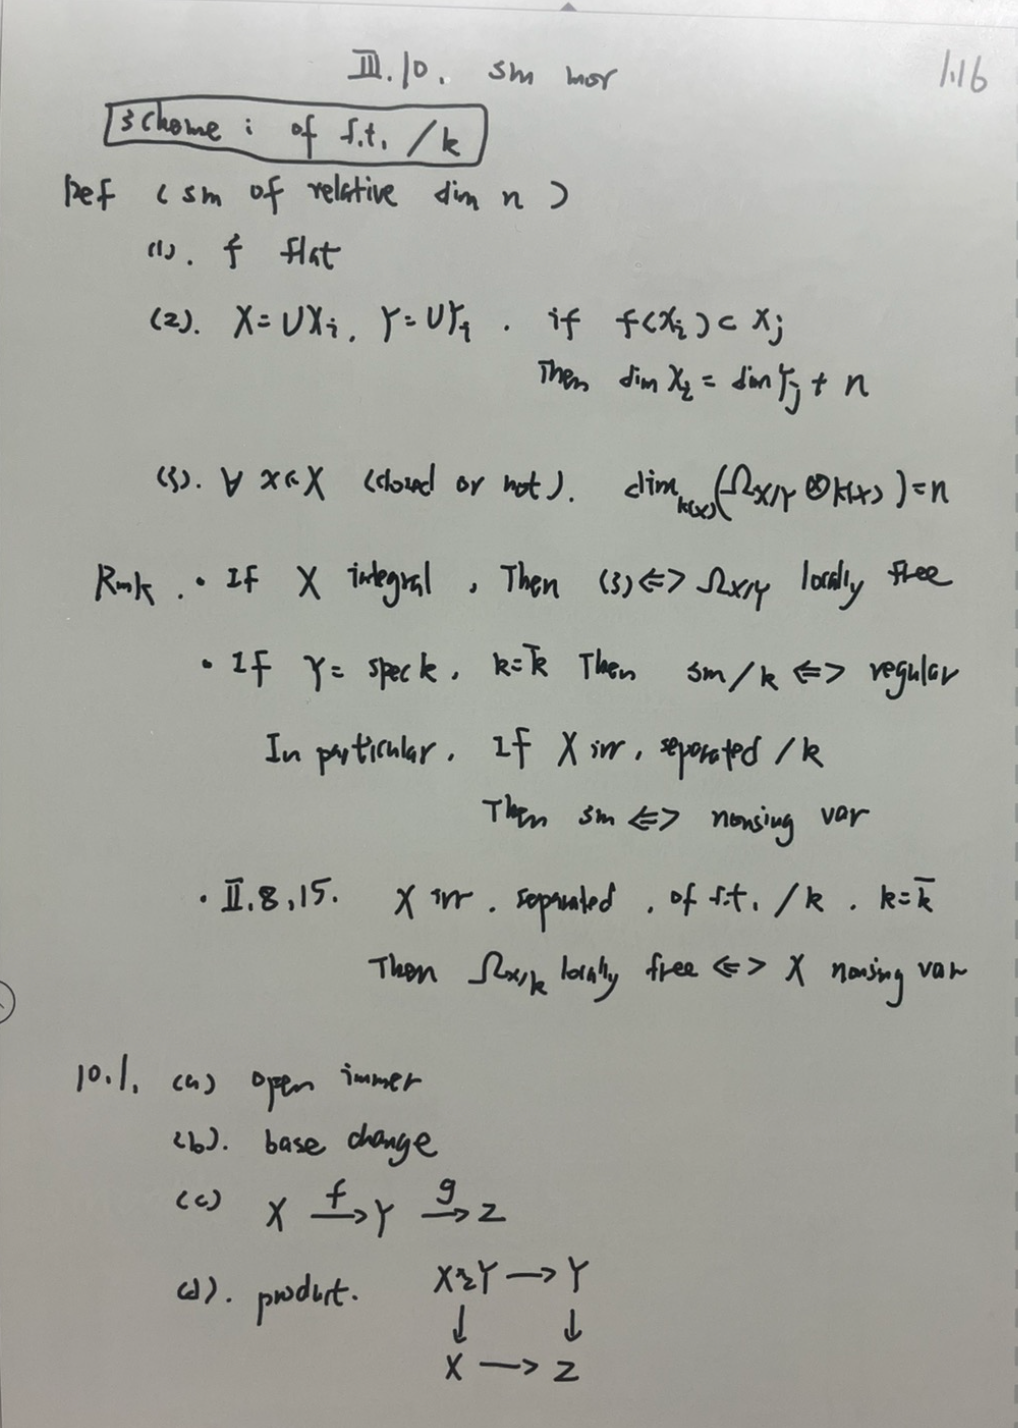 III.10. sm mor 1.16
scheme : of f.t. /k
Def (sm of relative dim n)
(1). f flat
(2). X=∪Xi, Y=∪Yj . if f(Xi)⊂Xj
Then dim Xi = dim Yj + n
(3). ∀ x∈X (closed or not). dim_k(x)(Ω_X/Y ⊗ k(x))=n
Rmk . • If X integral , Then (3)<=> Ω_X/Y locally free
• If Y= spec k, k=k̄ Then sm/k <=> regular
In particular. If X irr, separated /k
Then sm <=> nonsing var
• II.8.15. X irr . separated , of f.t. /k . k=k̄
Then Ω_X/k locally free <=> X nonsing var
10.1. (a) open immer
(b). base change
(c) X →f Y →g Z
(d). product. X×_Z Y → Y
↓ ↓
X → Z